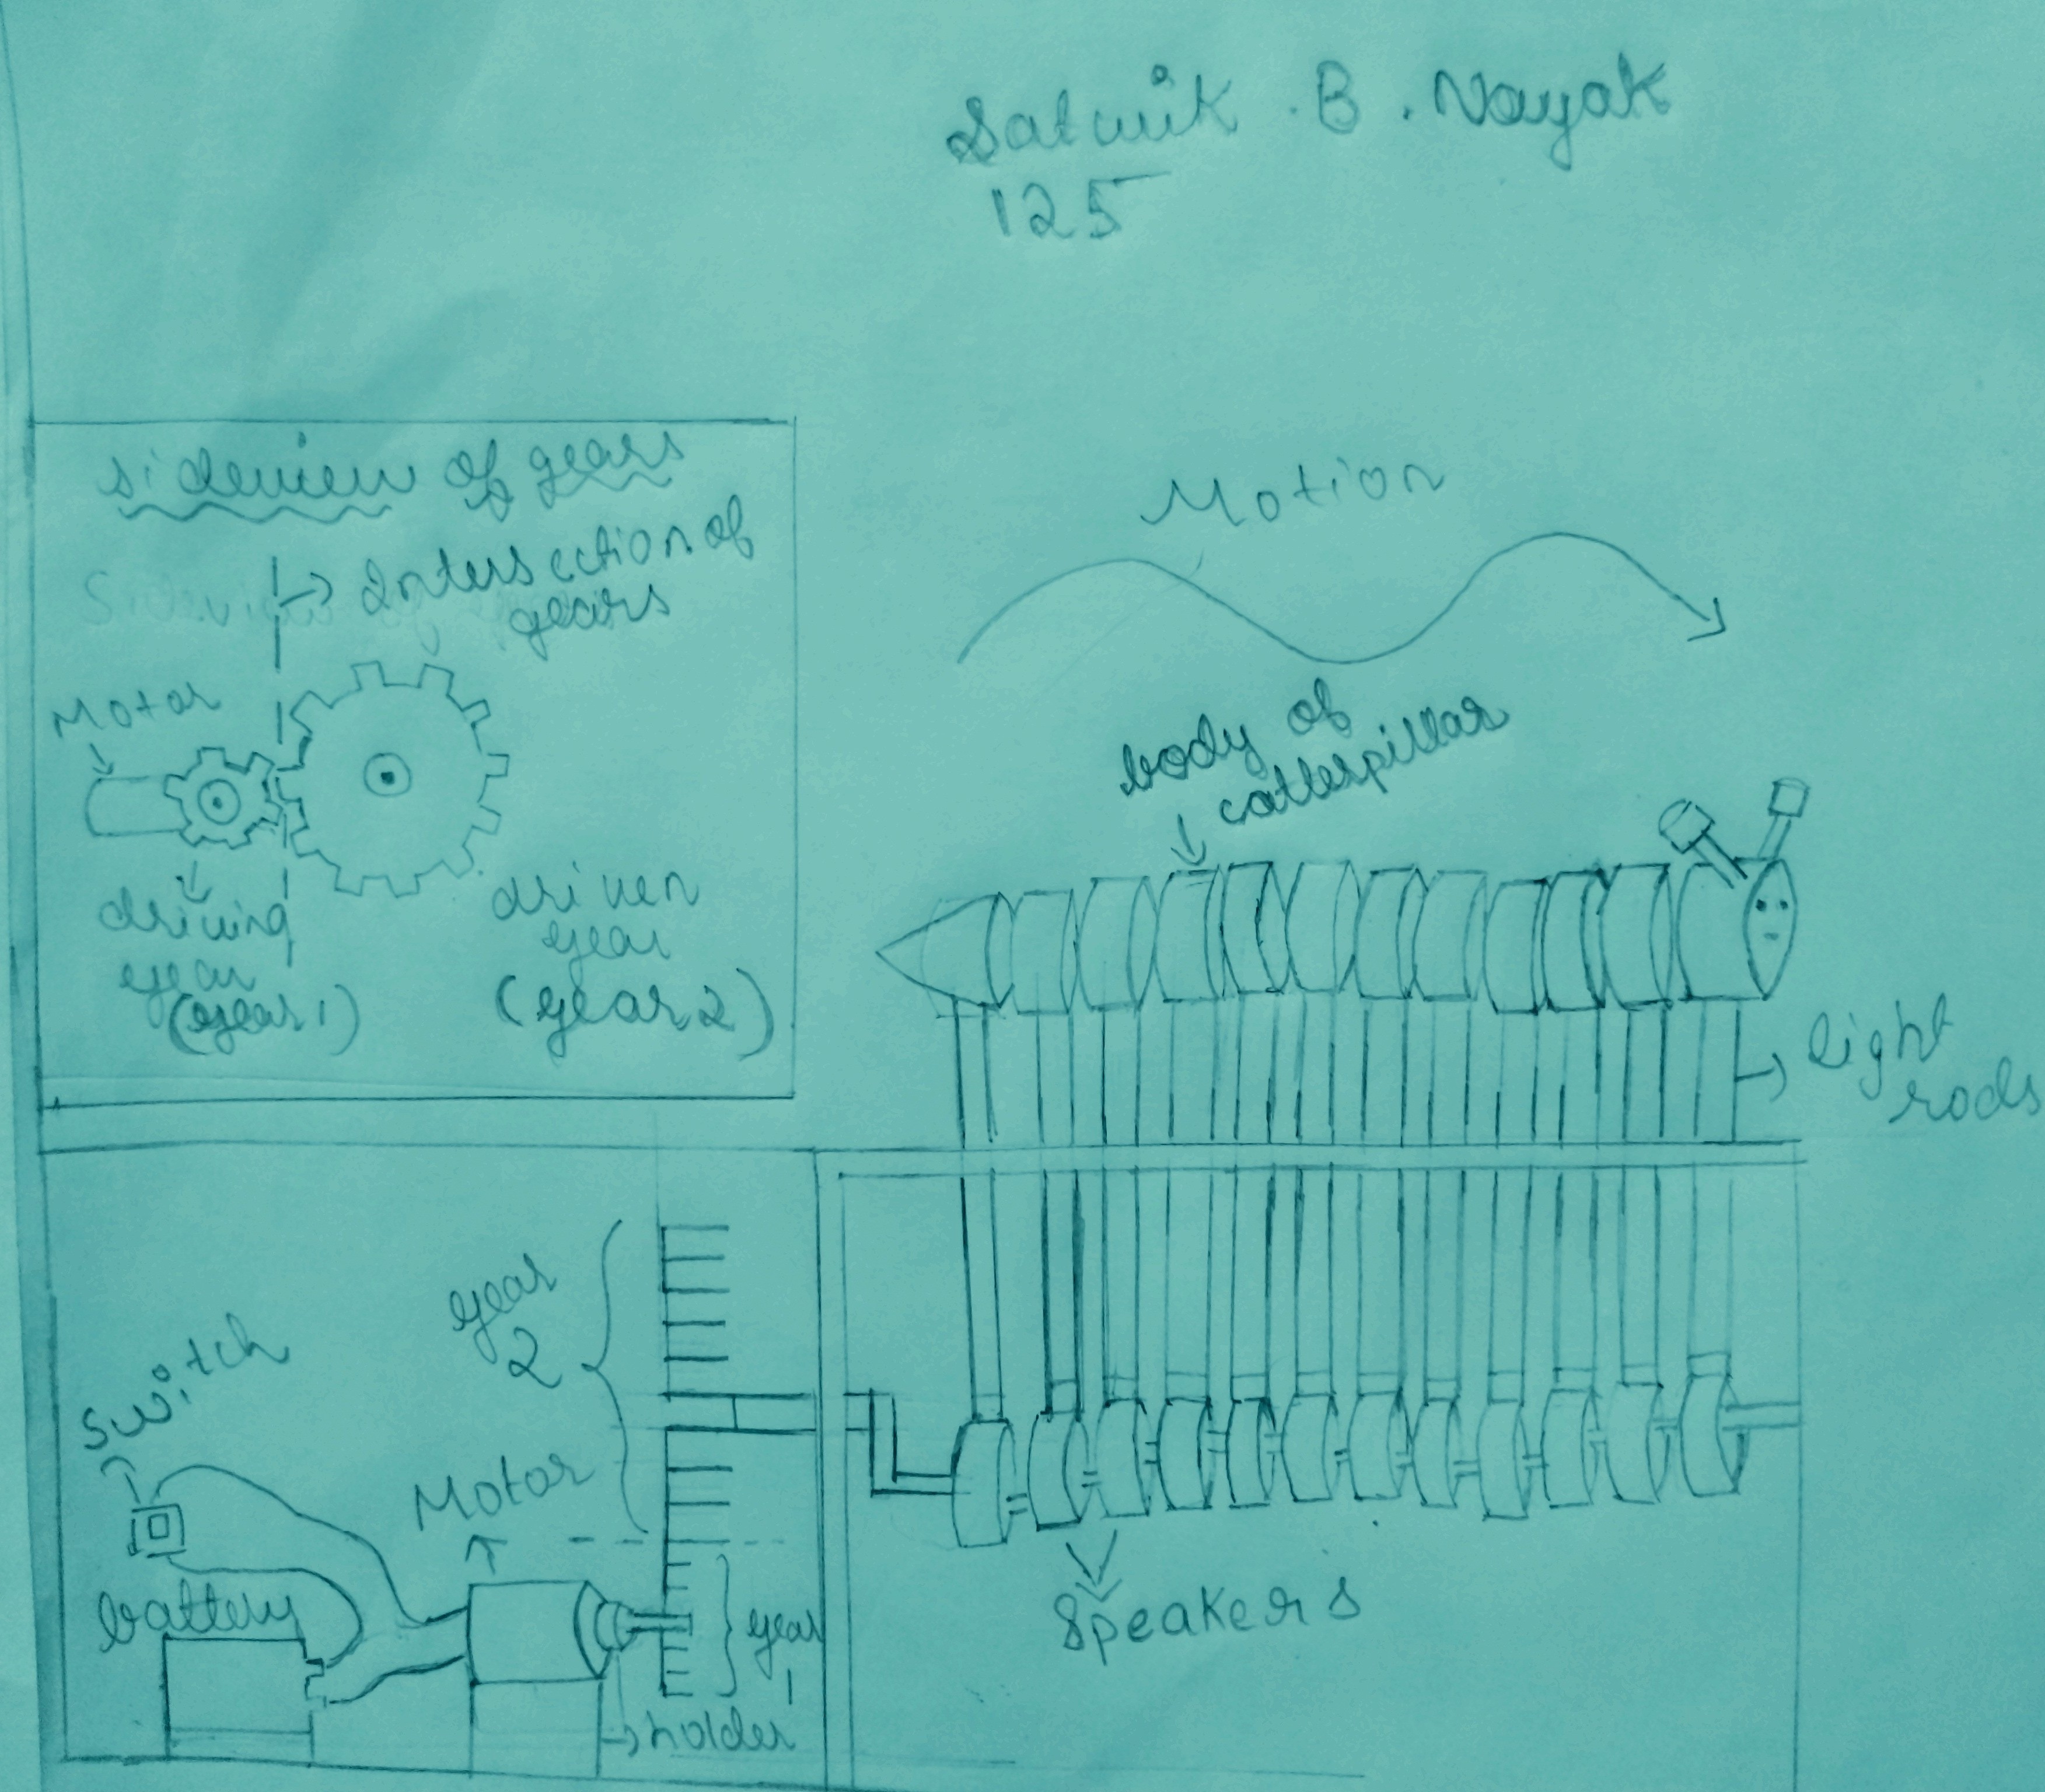 Satwik . B . Nayak
125
sideview of gears
Intersection of
gears
Motor
driving
gear
(gear 1)
driven
gear
(gear 2)
Motion
body of
catterpillar
light
rods
gear
2
Switch
Motor
battery
gear
1
holder
Speakers